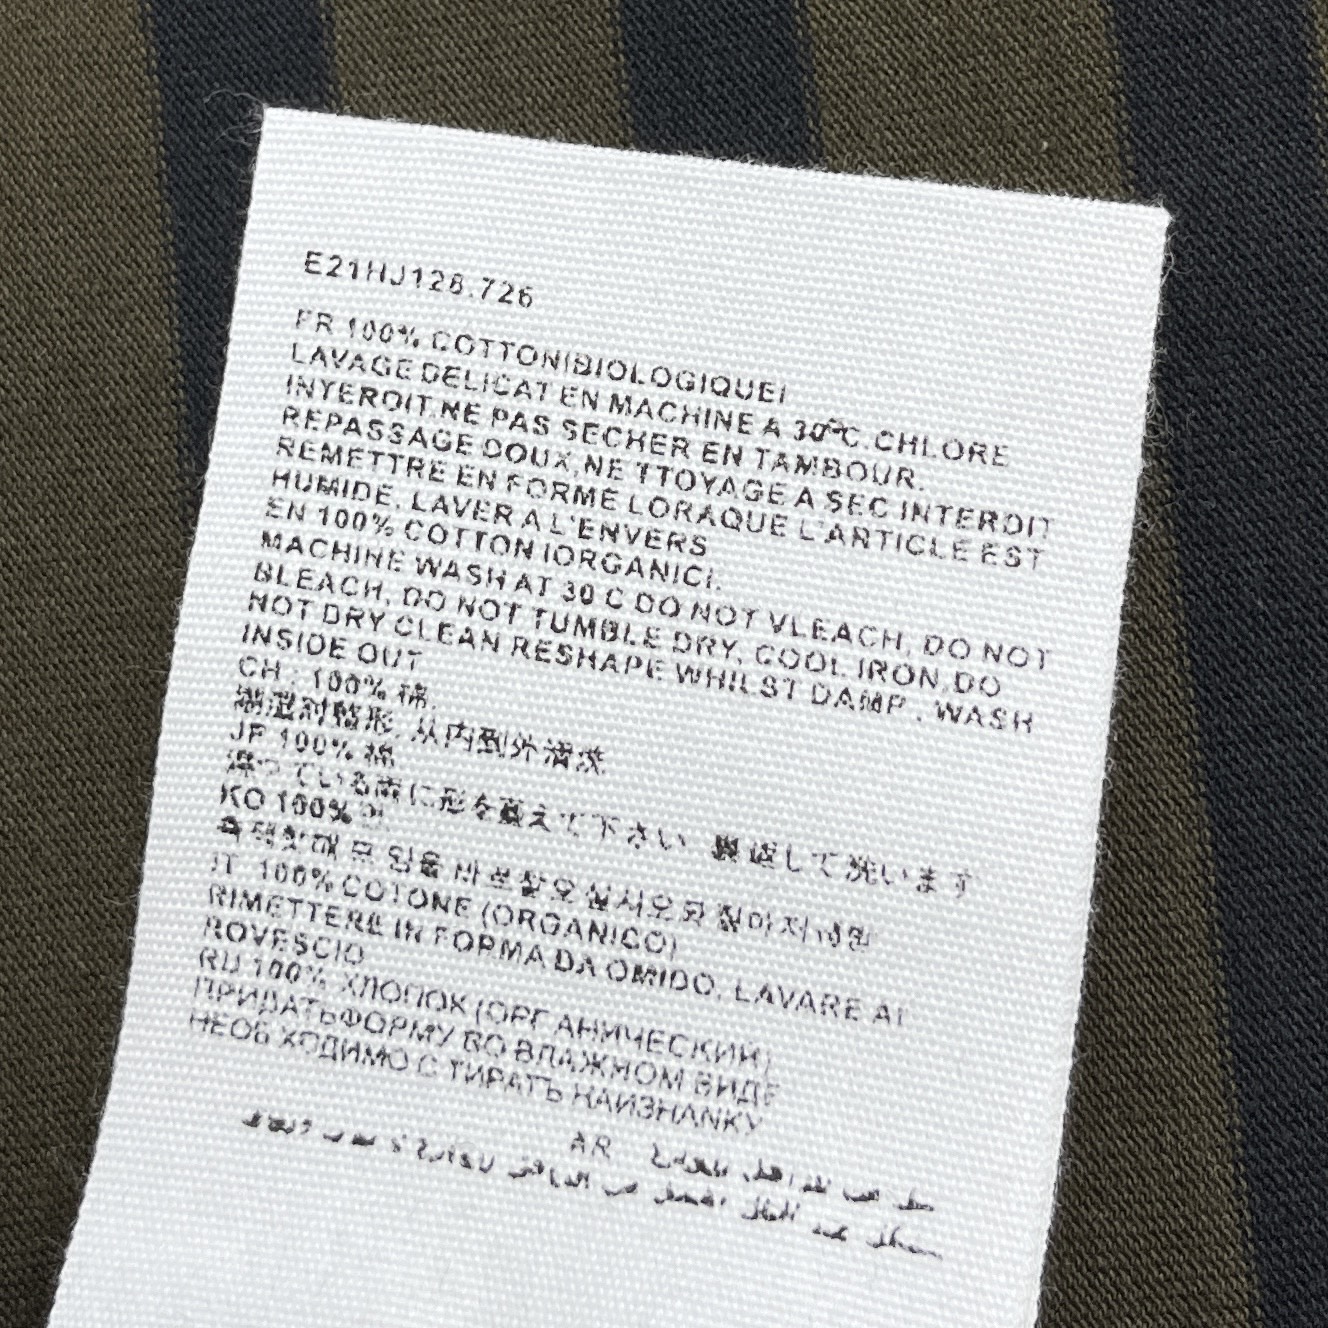 E21HJ128.726
FR 100% COTTON(BIOLOGIQUE)
LAVAGE DELICAT EN MACHINE A 30°C.CHLORE
INYERDIT.NE PAS SECHER EN TAMBOUR.
REPASSAGE DOUX,NE TTOYAGE A SEC INTERDIT
REMETTRE EN FORME LORAQUE L'ARTICLE EST
HUMIDE. LAVER A L'ENVERS
EN 100% COTTON IORGANICI.
MACHINE WASH AT 30 C DO NOT VLEACH, DO NOT
BLEACH, DO NOT TUMBLE DRY, COOL IRON,DO
NOT DRY CLEAN RESHAPE WHILST DAMP . WASH
INSIDE OUT
CH : 100% 棉.
从内到外清洗
JP 100% 綿
に形を整えて下さい 裏返して洗います
KO 100%
IT 100% COTONE (ORGANICO)
RIMETTERE IN FORMA DA OMIDO, LAVARE AI
ROVESCIO
RU 100% ХЛОПОК (ОРГ АНИЧЕСКИИ)
ПРИДАТЬФОРМУ ВО ВЛАЖНОМ ВИДЕ
НЕОБ ХОДИМО С ТИРАТЬ НАИЗНАNКУ
AR